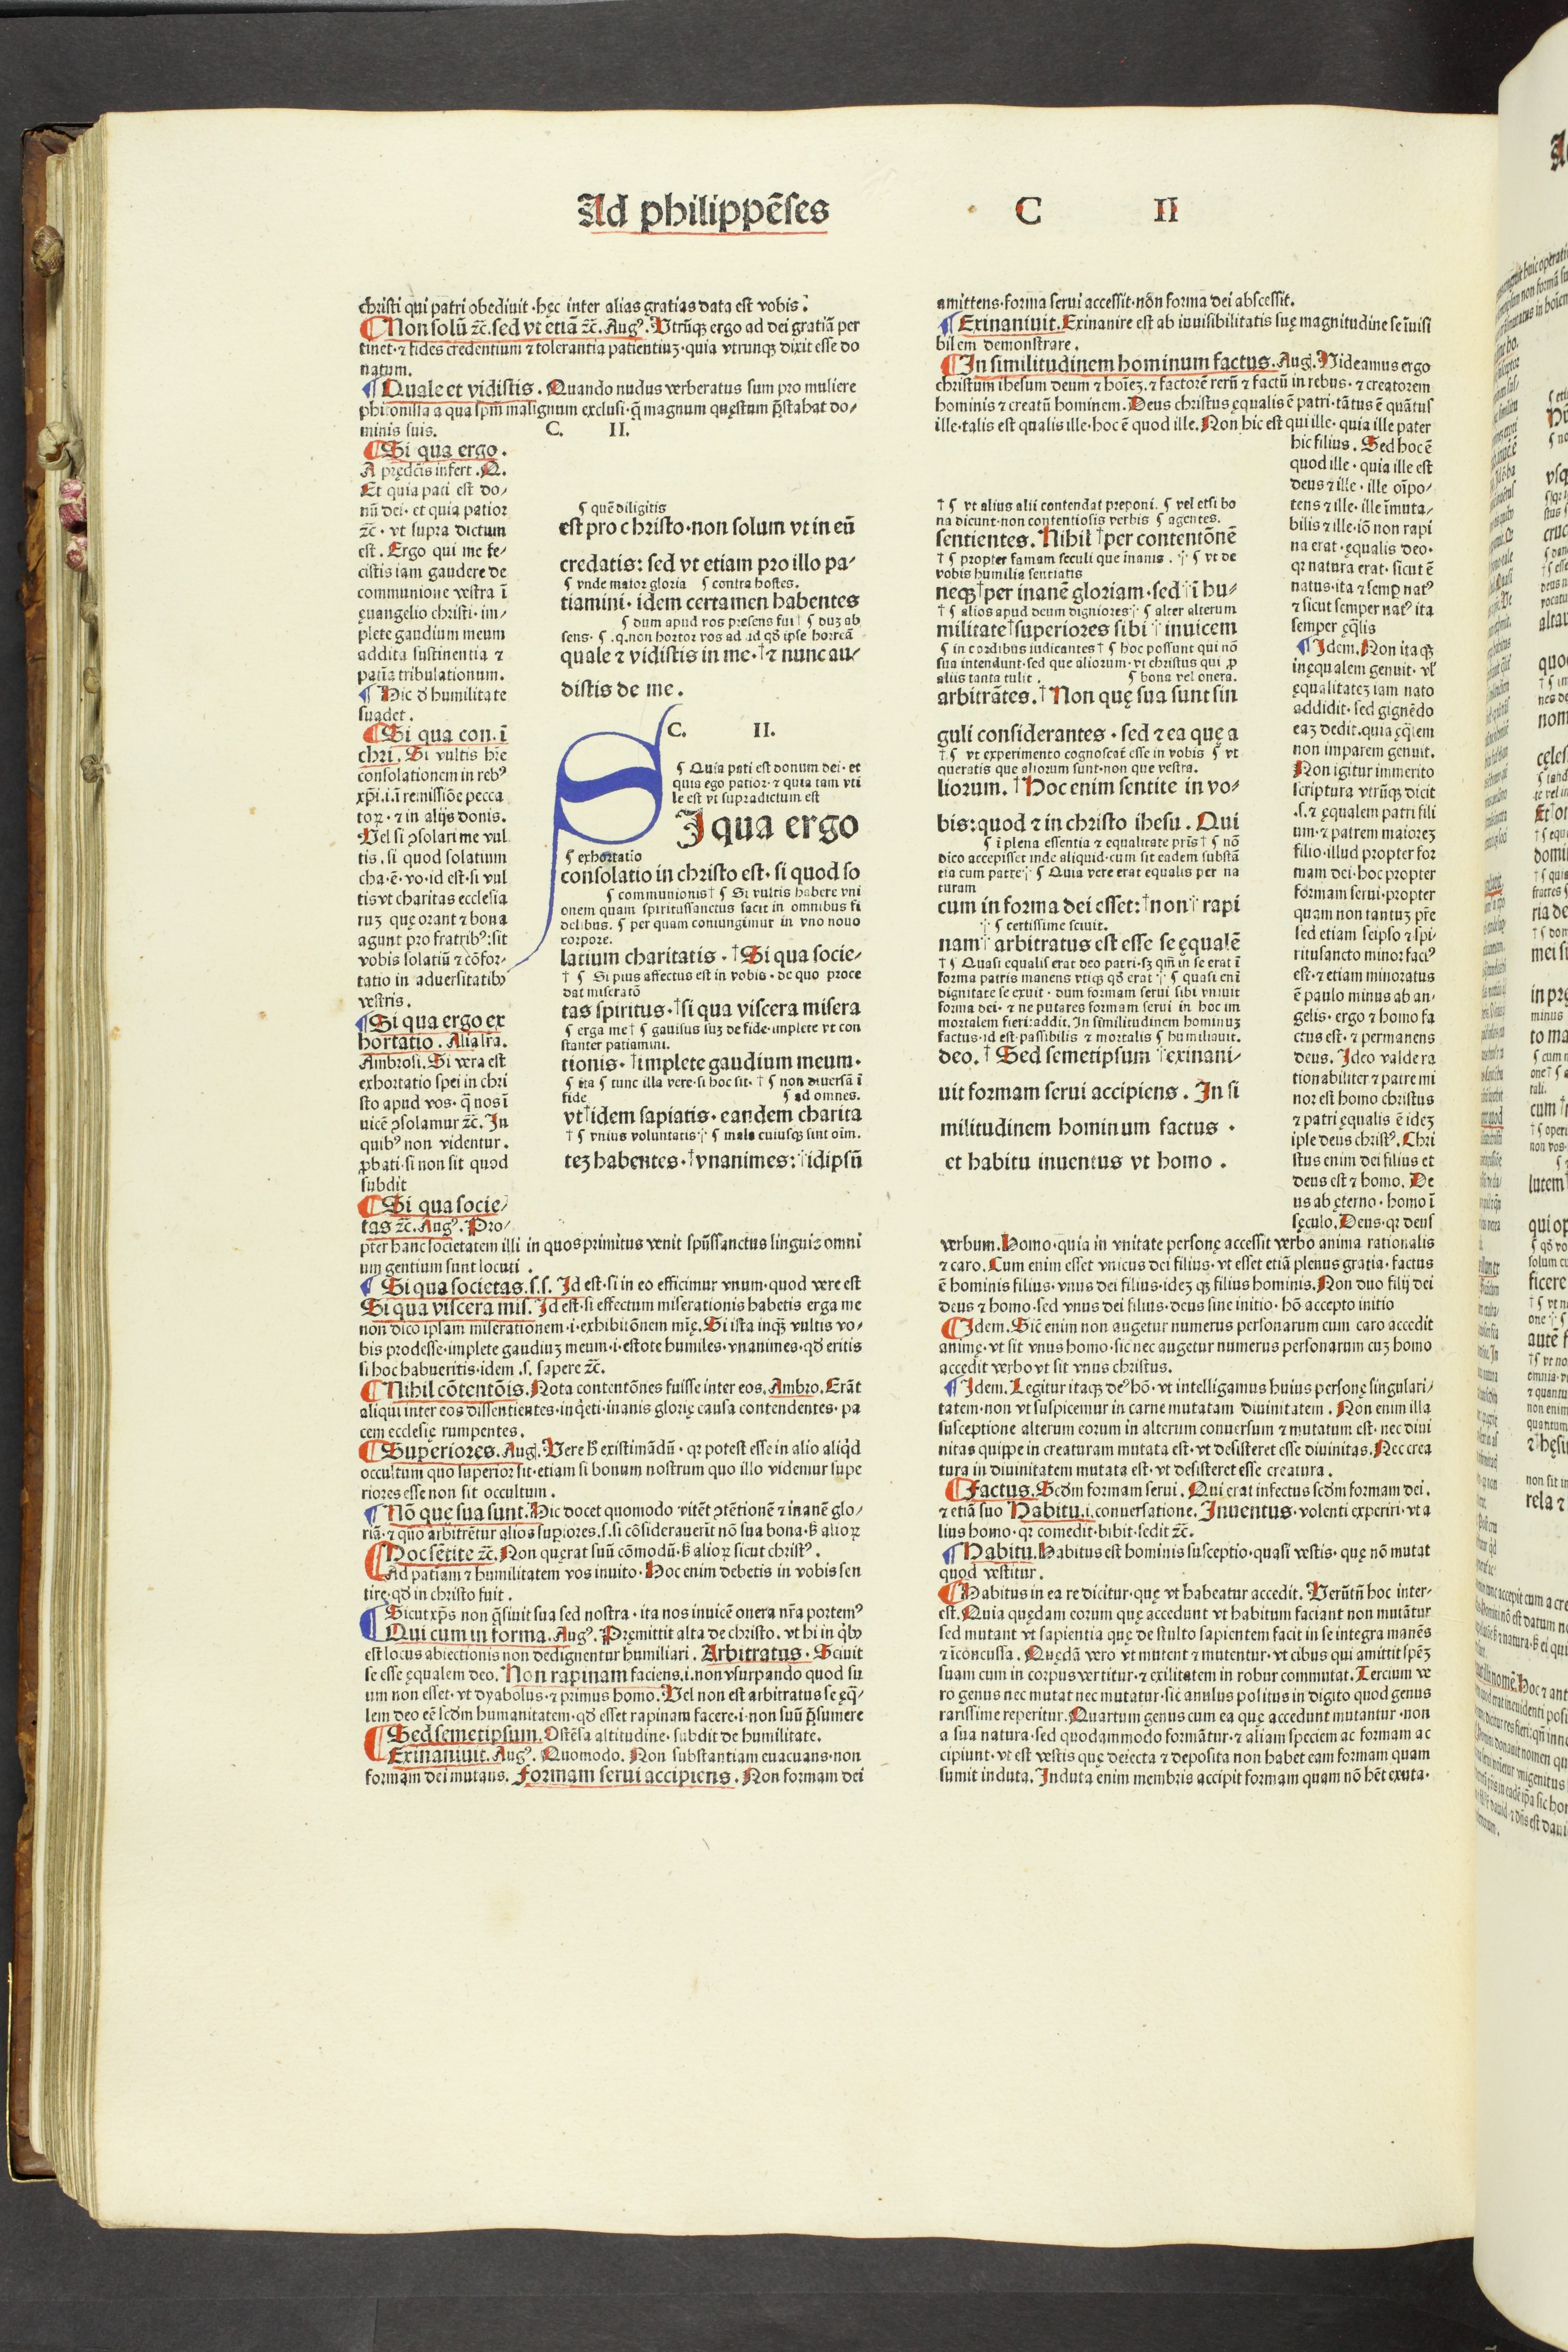 Ad philippēses C II
christi qui patri obediuit·hęc inter alias gratias data est vobis.
¶Non solū ⁊c̄. sed vt etiā ⁊c̄. Augꝰ. Vtrūqꝫ ergo ad dei gratiā per
tinet·⁊ fides credentium ⁊ tolerantia patientiuꝫ·quia vtrunqꝫ dixit esse do
natum.
¶Quale et vidistis. Quando nudus verberatus sum pro muliere
phitonissa a qua spm̄ malignum exclusi·q̄ magnum quęstum p̄stabat do⸗
minis suis. C. II.
¶Si qua ergo.
A prędcīs infert. Q.
Et quia pati est do⸗
nū dei·et quia patior
⁊c̄·vt supra dictum
est. Ergo qui me fe⸗
cistis iam gaudere de
communione vestra ī
ęuangelio christi·im⸗
plete gaudium meum
addita sustinentia ⁊
patīa tribulationum.
¶Hic d̄ humilitate
suadet.
¶Si qua con. ī
chri. Si vultis hr̄e
consolationem in rebꝰ
xp̄i·i·ī remissiōe pecca
toꝝ·⁊ in alijs donis.
Vel si ꝯsolari me vul
tis·si quod solatium
cha·ē·vo·id est·si vul
tis vt charitas ecclesia
ruꝫ quę orant ⁊ bona
agunt pro fratribꝰ:sit
vobis solatiū ⁊ cōfor⸗
tatio in aduersitatibꝰ
vestris.
¶Si qua ergo ex
hortatio. Alia lr̄a.
Ambrosi. Si vera est
exhortatio spei in chri
sto apud vos·q̄ nos ī
uicē ꝯsolamur ⁊c̄. In
quibꝰ non videntur.
ꝓbati·si non sit quod
subdit
¶Si qua socie⸗
tas ⁊c̄. Augꝰ. Pro⸗
pter hanc societatem illi in quos primitus venit spūssanctus linguis omni
um gentium sunt locuti.
¶Si qua societas.s.s. Id est·si in eo efficimur vnum·quod vere est
Si qua viscera mis. Id est·si effectum miserationis habetis erga me
non dico ipsam miserationem·i·exhibitōnem mīę. Si ista inqꝫ vultis vo⸗
bis prodesse·implete gaudiuꝫ meum·i·estote humiles·vnanimes·qđ eritis
si hoc habueritis·idem .s. sapere ⁊c̄.
¶Nihil cōtentōis. Nota contentōnes fuisse inter eos. Ambro. Erāt
aliqui inter eos dissentientes·inq̄eti·inanis glorię causa contendentes·pa
cem ecclesię rumpentes.
¶Superiores. Augꝰ. Vere ꝧ existimādū·qꝛ potest esse in alio aliq̇d
occultum quo superior sit·etiam si bonum nostrum quo illo videmur supe
riores esse non sit occultum.
¶Nō que sua sunt. Hic docet quomodo vitēt ꝯtētionē ⁊ inanē glo⸗
riā·⁊ quo arbitrētur alios supiores.s.si cōsiderauerīt nō sua bona·ꝧ alioꝝ
¶Hoc sētite ⁊c̄. Non quęrat suū cōmodū·ꝧ alioꝝ sicut christꝰ.
Ad patīam ⁊ humilitatem vos inuito·Hoc enim debetis in vobis sen
tire·qđ in christo fuit.
¶Sicut xp̄s non q̄siuit sua sed nostra·ita nos inuicē onera nr̄a portemꝰ
Qui cum in forma. Augꝰ. Pręmittit alta de christo·vt hi in q̇bꝰ
est locus abiectionis non dedignentur humiliari. Arbitratus. Sciuit
se esse ęqualem deo. Non rapinam faciens.i.non vsurpando quod su
um non esset·vt dyabolus·⁊ primus homo. Vel non est arbitratus se ęq̄⸗
lem deo eē scđm humanitatem·qđ esset rapinam facere·i·non suū p̄sumere
¶Sed semetipsum. Ostēsa altitudine·subdit de humilitate.
Exinaniuit. Augꝰ. Quomodo. Non substantiam euacuans·non
formam dei mutans. Formam serui accipiens. Non formam dei
¶ quē diligitis
est pro christo·non solum vt in eū
credatis: sed vt etiam pro illo pa⸗
¶ vnde maior gloria ¶ contra hostes.
tiamini·idem certamen habentes
¶ dum apud vos presens fui† ¶ duꝫ ab
sens· ¶ .q.non hortor vos ad id qđ ipse horreā
quale ⁊ vidistis in me·†⁊ nunc au⸗
distis de me.
C. II.
¶ Quia pati est donum dei·et
quia ego patior·⁊ quia tam vti
le est vt supradictum est
SIqua ergo
¶ exhortatio
consolatio in christo est·si quod so
¶ communionis† ¶ Si vultis habere vni
onem quam spiritussanctus facit in omnibus fi
delibus. ¶ per quam coniungimur in vno nouo
corpore.
latium charitatis·†Si qua socie⸗
† ¶ Si pius affectus est in vobis·de quo proce
dat miseratō
tas spiritus·†si qua viscera misera
¶ erga me† ¶ gauisus suꝫ de fide·implete vt con
stanter patiamini.
tionis·†implete gaudium meum·
¶ ita ¶ tunc illa vere·si hoc sit·† ¶ non diuersā ī
fide ¶ ad omnes.
vt†idem sapiatis·eandem charita
† ¶ vnius voluntatis⸓ ¶ mala cuiusqꝫ sint oīm.
teꝫ habentes·†vnanimes:†idipsū
amittens·forma serui accessit·nōn forma dei abscessit.
¶Exinaniuit. Exinanire est ab inuisibilitatis suę magnitudine se īuisi
bilem demonstrare.
¶In similitudinem hominum factus. Augꝰ. Videamus ergo
christum ihesum deum ⁊ hoīeꝫ·⁊ factorē rerū ⁊ factū in rebus·⁊ creatorem
hominis ⁊ creatū hominem. Deus christus ęqualis ē patri·tātus ē quātus
ille·talis est qualis ille·hoc ē quod ille. Non hic est qui ille·quia ille pater
hic filius. Sed hoc ē
quod ille·quia ille est
deus ⁊ ille·ille oīpo⸗
tens ⁊ ille·ille īmuta⸗
bilis ⁊ ille·iō non rapi
na erat·ęqualis deo·
qꝛ natura erat·sicut ē
natus·ita ⁊ semp̱ natꝰ
⁊ sicut semper natꝰ ita
semper ęq̄lis
¶Idem. Non itaqꝫ
inęqualem genuit·vl̓
ęqualitateꝫ iam nato
addidit·sed gignēdo
eaꝫ dedit·quia ęq̄lem
non imparem genuit.
Non igitur immerito
scriptura vtrūqꝫ dicit
.s.⁊ ęqualem patri fili
um·⁊ patrem maioreꝫ
filio·illud propter for
mam dei·hoc propter
formam serui·propter
quam non tantuꝫ pr̄e
sed etiam seipso ⁊ spi⸗
ritusancto minor facꝰ
est·⁊ etiam minoratus
ē paulo minus ab an⸗
gelis·ergo ⁊ homo fa
ctus est·⁊ permanens
deus. Ideo valde ra
tionabiliter ⁊ patre mi
nor est homo christus
⁊ patri ęqualis ē ideꝫ
ipse deus christꝰ. Chri
stus enim dei filius et
deus est ⁊ homo. De
us ab ęterno·homo ī
sęculo. Deus·qꝛ deus
verbum. Homo·quia in vnitate personę accessit verbo anima rationalis
⁊ caro. Cum enim esset vnicus dei filius·vt esset etiā plenus gratia·factus
ē hominis filius·vnus dei filius·ideꝫ qꝫ filius hominis. Non duo filij dei
deus ⁊ homo·sed vnus dei filius·deus sine initio·hō accepto initio
¶Idem. Sic̄ enim non augetur numerus personarum cum caro accedit
animę·vt sit vnus homo·sic nec augetur numerus personarum cuꝫ homo
accedit verbo vt sit vnus christus.
¶Idem. Legitur itaqꝫ deꝰ hō·vt intelligamus huius personę singulari⸗
tatem·non vt suspicemur in carne mutatam diuinitatem. Non enim illa
susceptione alterum eorum in alterum conuersum ⁊ mutatum est·nec diui
nitas quippe in creaturam mutata est·vt desisteret esse diuinitas. Nec crea
tura in diuinitatem mutata est·vt desisteret esse creatura.
¶Factus. Scđm formam serui. Qui erat infectus scđm formam dei.
⁊ etiā suo Habitu.i.conuersatione. Inuentus·volenti experiri·vt a
lius homo·qꝛ comedit·bibit·sedit ⁊c̄.
¶Habitu. Habitus est hominis susceptio·quasi vestis·quę nō mutat
quod vestitur.
¶Habitus in ea re dicitur·quę vt habeatur accedit. Verūtn̄ hoc inter⸗
est. Quia quędam eorum quę accedunt vt habitum faciant non mutātur
sed mutant vt sapientia quę de stulto sapientem facit in se integra manēs
⁊ īconcussa. Quędā vero vt mutent ⁊ mutentur·vt cibus qui amittit spēꝫ
suam cum in corpus vertitur·⁊ exilitatem in robur commutat. Tercium ve
ro genus nec mutat nec mutatur·sic̄ anulus positus in digito quod genus
rarissime reperitur. Quartum genus cum ea quę accedunt mutantur·non
a sua natura·sed quodammodo formātur·⁊ aliam speciem ac formam ac
cipiunt·vt est vestis quę deiecta ⁊ deposita non habet eam formam quam
sumit induta. Induta enim membris accipit formam quam nō hēt exuta.
† ¶ vt alius alii contendat preponi. ¶ vel etsi bo
na dicunt·non contentiosis verbis ¶ agentes.
sentientes. Nihil †per contentōnē
† ¶ propter famam seculi que inanis. ⸓ ¶ vt de
vobis humilia sentiatis
neqꝫ†per inanē gloriam·sed†ī hu⸗
† ¶ alios apud deum digniores⸓ ¶ alter alterum
militate†superiores sibi † inuicem
¶ in cordibus iudicantes† ¶ hoc possunt qui nō
sua intendunt·sed que aliorum·vt christus qui ꝓ
aliis tanta tulit. ¶ bona vel onera.
arbitrātes. †Non quę sua sunt sin
guli considerantes·sed ⁊ ea quę a
† ¶ vt experimento cognoscāt esse in vobis ¶ vt
queratis que aliorum sunt·non que vestra.
liorum. †Hoc enim sentite in vo⸗
bis:quod ⁊ in christo ihesu. Qui
¶ ī plena essentia ⁊ equalitate pr̄is† ¶ nō
dico accepisset inde aliquid·cum sit eadem substā
tia cum patre⸓ ¶ Quia vere erat equalis per na
turam
cum in forma dei esset:†non† rapi
⸓ ¶ certissime sciuit.
nam† arbitratus est esse se ęqualē
† ¶ Quasi equalis erat deo patri·sꝫ qm̄ in se erat ī
forma patris manens vtiqꝫ qđ erat⸓ ¶ quasi eni
dignitate se exuit·dum formam serui sibi vniuit
forma dei·⁊ ne putares formam serui in hoc im
mortalem fieri:addit. In similitudinem hominuꝫ
factus·id est·passibilis ⁊ mortalis ¶ humiliauit.
deo. † Sed semetipsum †exinani⸗
uit formam serui accipiens. In si
militudinem hominum factus·
et habitu inuentus vt homo.